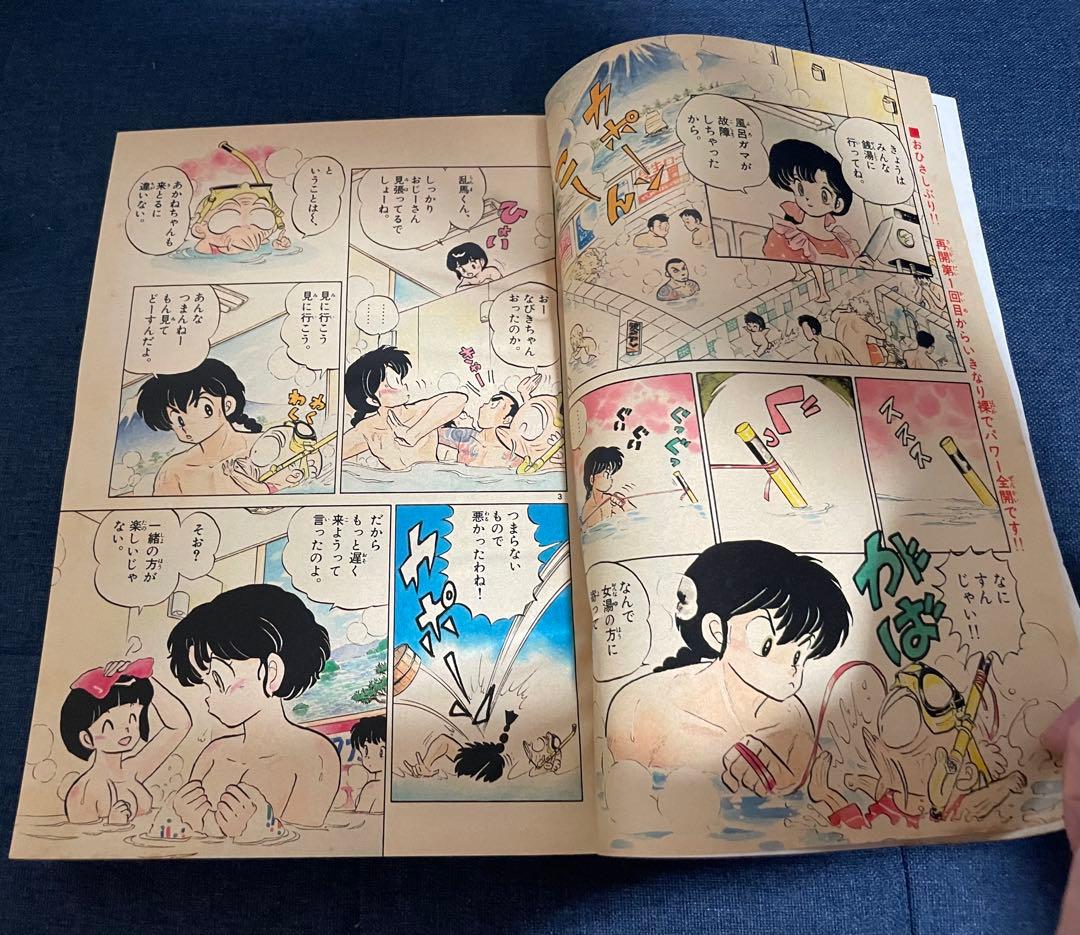 ■おひさしぶり!!再開第1回目からいきなり裸でパワー全開です!!
きょうは
みんな
銭湯に
行ってね。
風呂ガマが
故障
しちゃった
から。
カポーン
ススス
ぐっ
ぐいぐい
ぐっぐっ
がばっ
なに
すん
じゃい!!
なんで
女湯の方に
寄って
乱馬くん、
しっかり
おじーさん
見張ってるで
しょーね。
ひょい
と
いうことは〜、
あかねちゃんも
来とるに
違いない。
おー
なびきちゃん
おったのか。
………
きゃー
見に行こう
見に行こう。
あんな
つまんねー
もん見て
どーすんだよ。
わく
わく
3
つまらない
もので
悪かったわね!
カポーン
だから
もっと遅く
来ようって
言ったのよ。
そお?
一緒の方が
楽しいじゃ
ない。